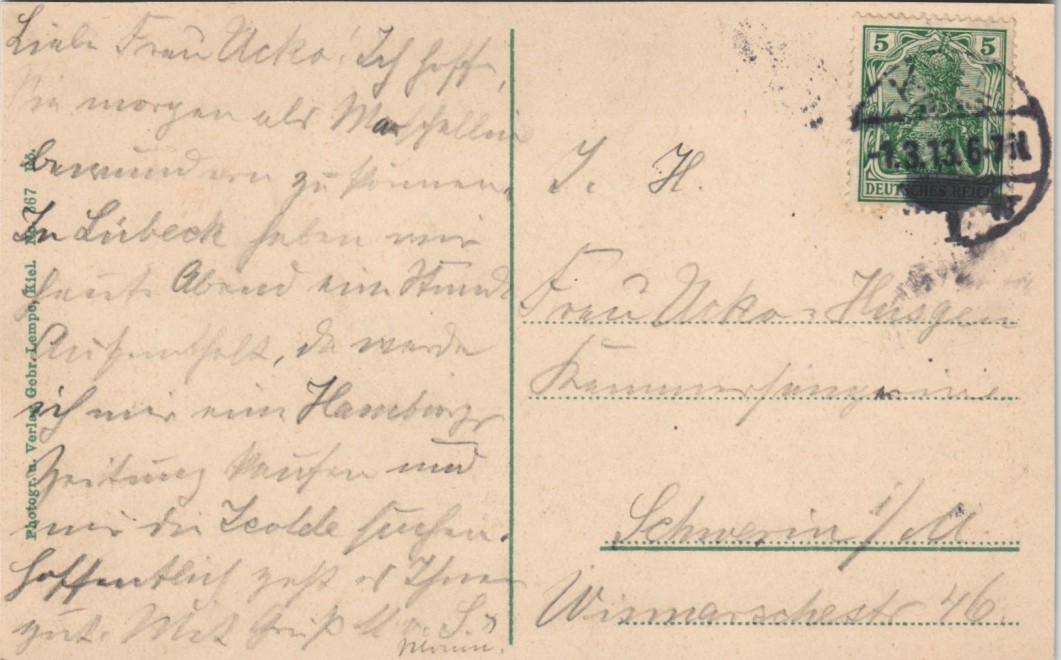 Liebe Frau Ucko! Ich hoffe,
Sie morgen als Marschallin
bewundern zu können.
In Lübeck haben wir
heute Abend eine Stunde
Aufenthalt, da werde
ich mir eine Hamburger
Zeitung kaufen und
mir die Isolde suchen.
Hoffentlich geht es Ihnen
gut. Mit Gruß
Photogr. u. Verlag Gebr. Lempe, Kiel. No. 367
5 5
-1.3.13. 6-7 N
DEUTSCHES REICH
I. H.
Frau Ucko-Husgen
Kammersängerin
Schwerin i/M.
Wismarschestr 46.